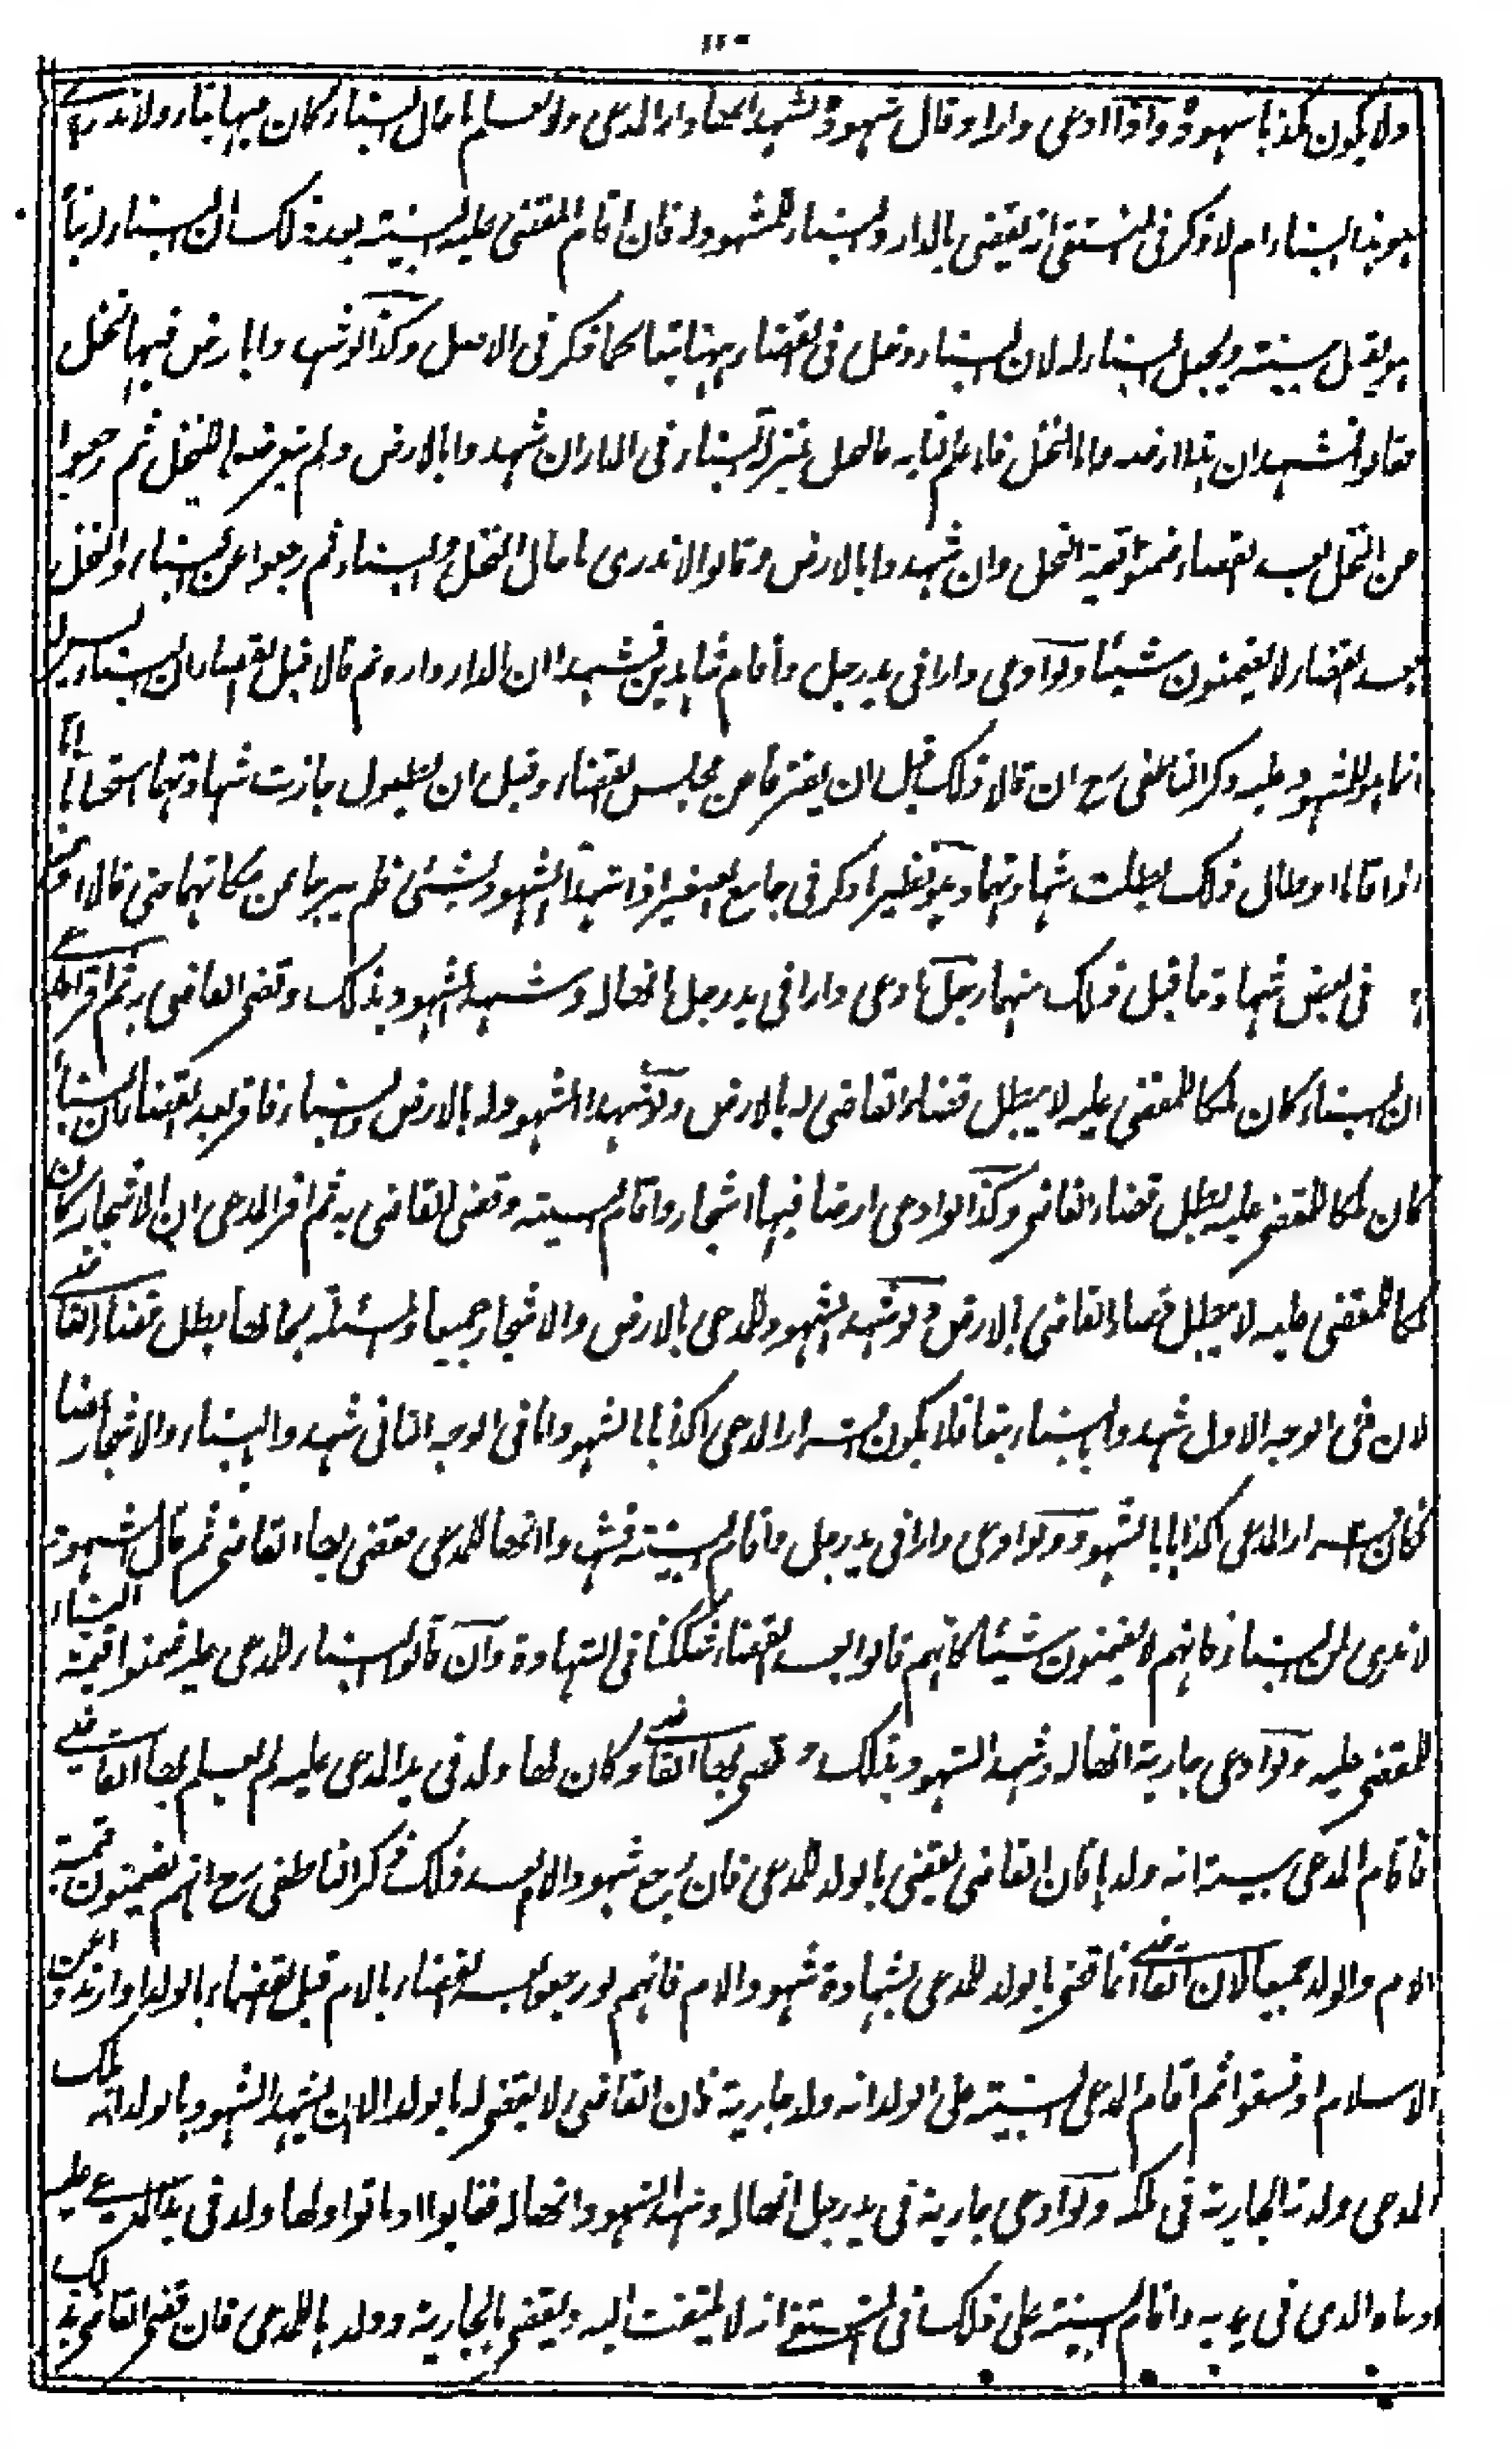 ولا يكون مكذبا شهوده واذا ادعى دارا وقال شهوده نشهد انها دار المدعى ولا نعلم ما حال البناء كان فيها بناء ولا ندرى
هو هذا البناء ام لا ذكر فى المنتقى انه يقضى بالدار والبناء للمشهود له فان اقام المقضى عليه البينة بعد ذلك ان البناء له بناه
هو يقبل بينته ويجعل البناء له لان البناء دخل فى القضاء ههنا تبعا كما ذكر فى الاصل وكذا لو شهدوا بارض فيها نخل
فقالوا نشهد ان هذا ارضه واما النخل فلا علم لنا به فالنخل بمنزلة البناء فى الدار ان شهدوا بالارض ولم يتعرضوا للنخل ثم رجعوا
عن النخل بعد القضاء ضمنوا قيمة النخل وان شهدوا بالارض وقالوا لا ندرى ما حال النخل والبناء ثم رجعوا عن البناء والنخل
بعد القضاء لا يضمنون شيئا ولو ادعى دارا فى يد رجل واقام شاهدين فشهدا ان الدار داره ثم قالا قبل القضاء ان البناء ليس له
انما هو للمشهود عليه ذكر الناطفى رح ان قالا ذلك قبل ان يفترقا عن مجلس القضاء وقبل ان يطول جازت شهادتهما استحسانا
اذا قاما او طال ذلك بطلت شهادتهما وهو نظير ما ذكر فى جامع الصغير اذا شهد الشهود بشئ فلم يبرحا عن مكانهما حتى قالا اوهمنا
فى بعض شهادتنا قبل ذلك منهما رجل ادعى دارا فى يد رجل انها له وشهد الشهود بذلك وقضى القاضى به ثم اقر المدعى
ان البناء كان ملكا للمقضى عليه لا يبطل قضاء القاضى له بالارض ولو شهد الشهود له بالارض والبناء فاقر بعد القضاء ان البناء
كان ملكا للمقضى عليه بطل قضاء القاضى وكذا لو ادعى ارضا فيها اشجار واقام البينة وقضى القاضى به ثم اقر المدعى ان الاشجار كان
ملكا للمقضى عليه لا يبطل قضاء القاضى بالارض ولو شهد الشهود للمدعى بالارض والاشجار جميعا والمسئلة بحالها بطل قضاء القاضى
لان فى الوجه الاول شهدوا بالبناء تبعا فلا يكون اقرار المدعى اكذابا للشهود اما فى الوجه الثانى شهدوا بالبناء والاشجار نصا
فكان اقرار المدعى اكذابا بالشهود ولو ادعى دارا فى يد رجل واقام البينة فشهدوا انها للمدعى فقضى بها القاضى ثم قال الشهود
لا ندرى لمن البناء فانهم لا يضمنون شيئا كانهم قالوا بعد القضاء شككنا فى الشهادة وان قالوا البناء للمدعى عليه ضمنوا قيمة البناء
للمقضى عليه ولو ادعى جارية انها له وشهد الشهود بذلك وقضى بها القاضى وكان لها ولد فى يد المدعى عليه لم يعلم بها القاضى
فاقام المدعى بينة انه ولدها فان القاضى يقضى بالولد للمدعى فان رجع شهود الام بعد ذلك ذكر الناطفى رح انهم يضمنون قيمة
الام والولد جميعا لان القاضى انما قضى بالولد للمدعى بشهادة شهود الام فانهم لو رجعوا بعد القضاء بالام قبل القضاء بالولد او ارتدوا عن
الاسلام او فسقوا ثم اقام المدعى البينة على الولد انه ولد جارية فان القاضى لا يقضى له بالولد الا ان يشهد الشهود بالولد انه ملك
المدعى ولدته الجارية فى ملكه ولو ادعى جارية فى يد رجل انها له وشهد الشهود انها له فغابوا او ماتوا ولها ولد فى يد المدعى عليه
ادعاه الذى فى يديه واقام البينة على ذلك فى المنتقى انه لا يلتفت اليه ويقضى بالجارية وولدها للمدعى فان قضى القاضى بذلك